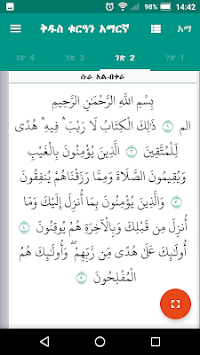 14:42
ቅዱስ ቁርዓን አማርኛ
አማ
ገጽ 4
ገጽ 3
ገጽ 2
ገጽ 1
ሱራ አል-በቀራ
بِسْمِ اللَّهِ الرَّحْمَٰنِ الرَّحِيمِ
الم ١ ذَٰلِكَ الْكِتَابُ لَا رَيْبَ ۛ فِيهِ ۛ هُدًى
لِّلْمُتَّقِينَ ٢ الَّذِينَ يُؤْمِنُونَ بِالْغَيْبِ
وَيُقِيمُونَ الصَّلَاةَ وَمِمَّا رَزَقْنَاهُمْ يُنفِقُونَ
٣ وَالَّذِينَ يُؤْمِنُونَ بِمَا أُنزِلَ إِلَيْكَ وَمَا
أُنزِلَ مِن قَبْلِكَ وَبِالْآخِرَةِ هُمْ يُوقِنُونَ ٤
أُولَٰئِكَ عَلَىٰ هُدًى مِّن رَّبِّهِمْ ۖ وَأُولَٰئِكَ هُمُ
الْمُفْلِحُونَ ٥